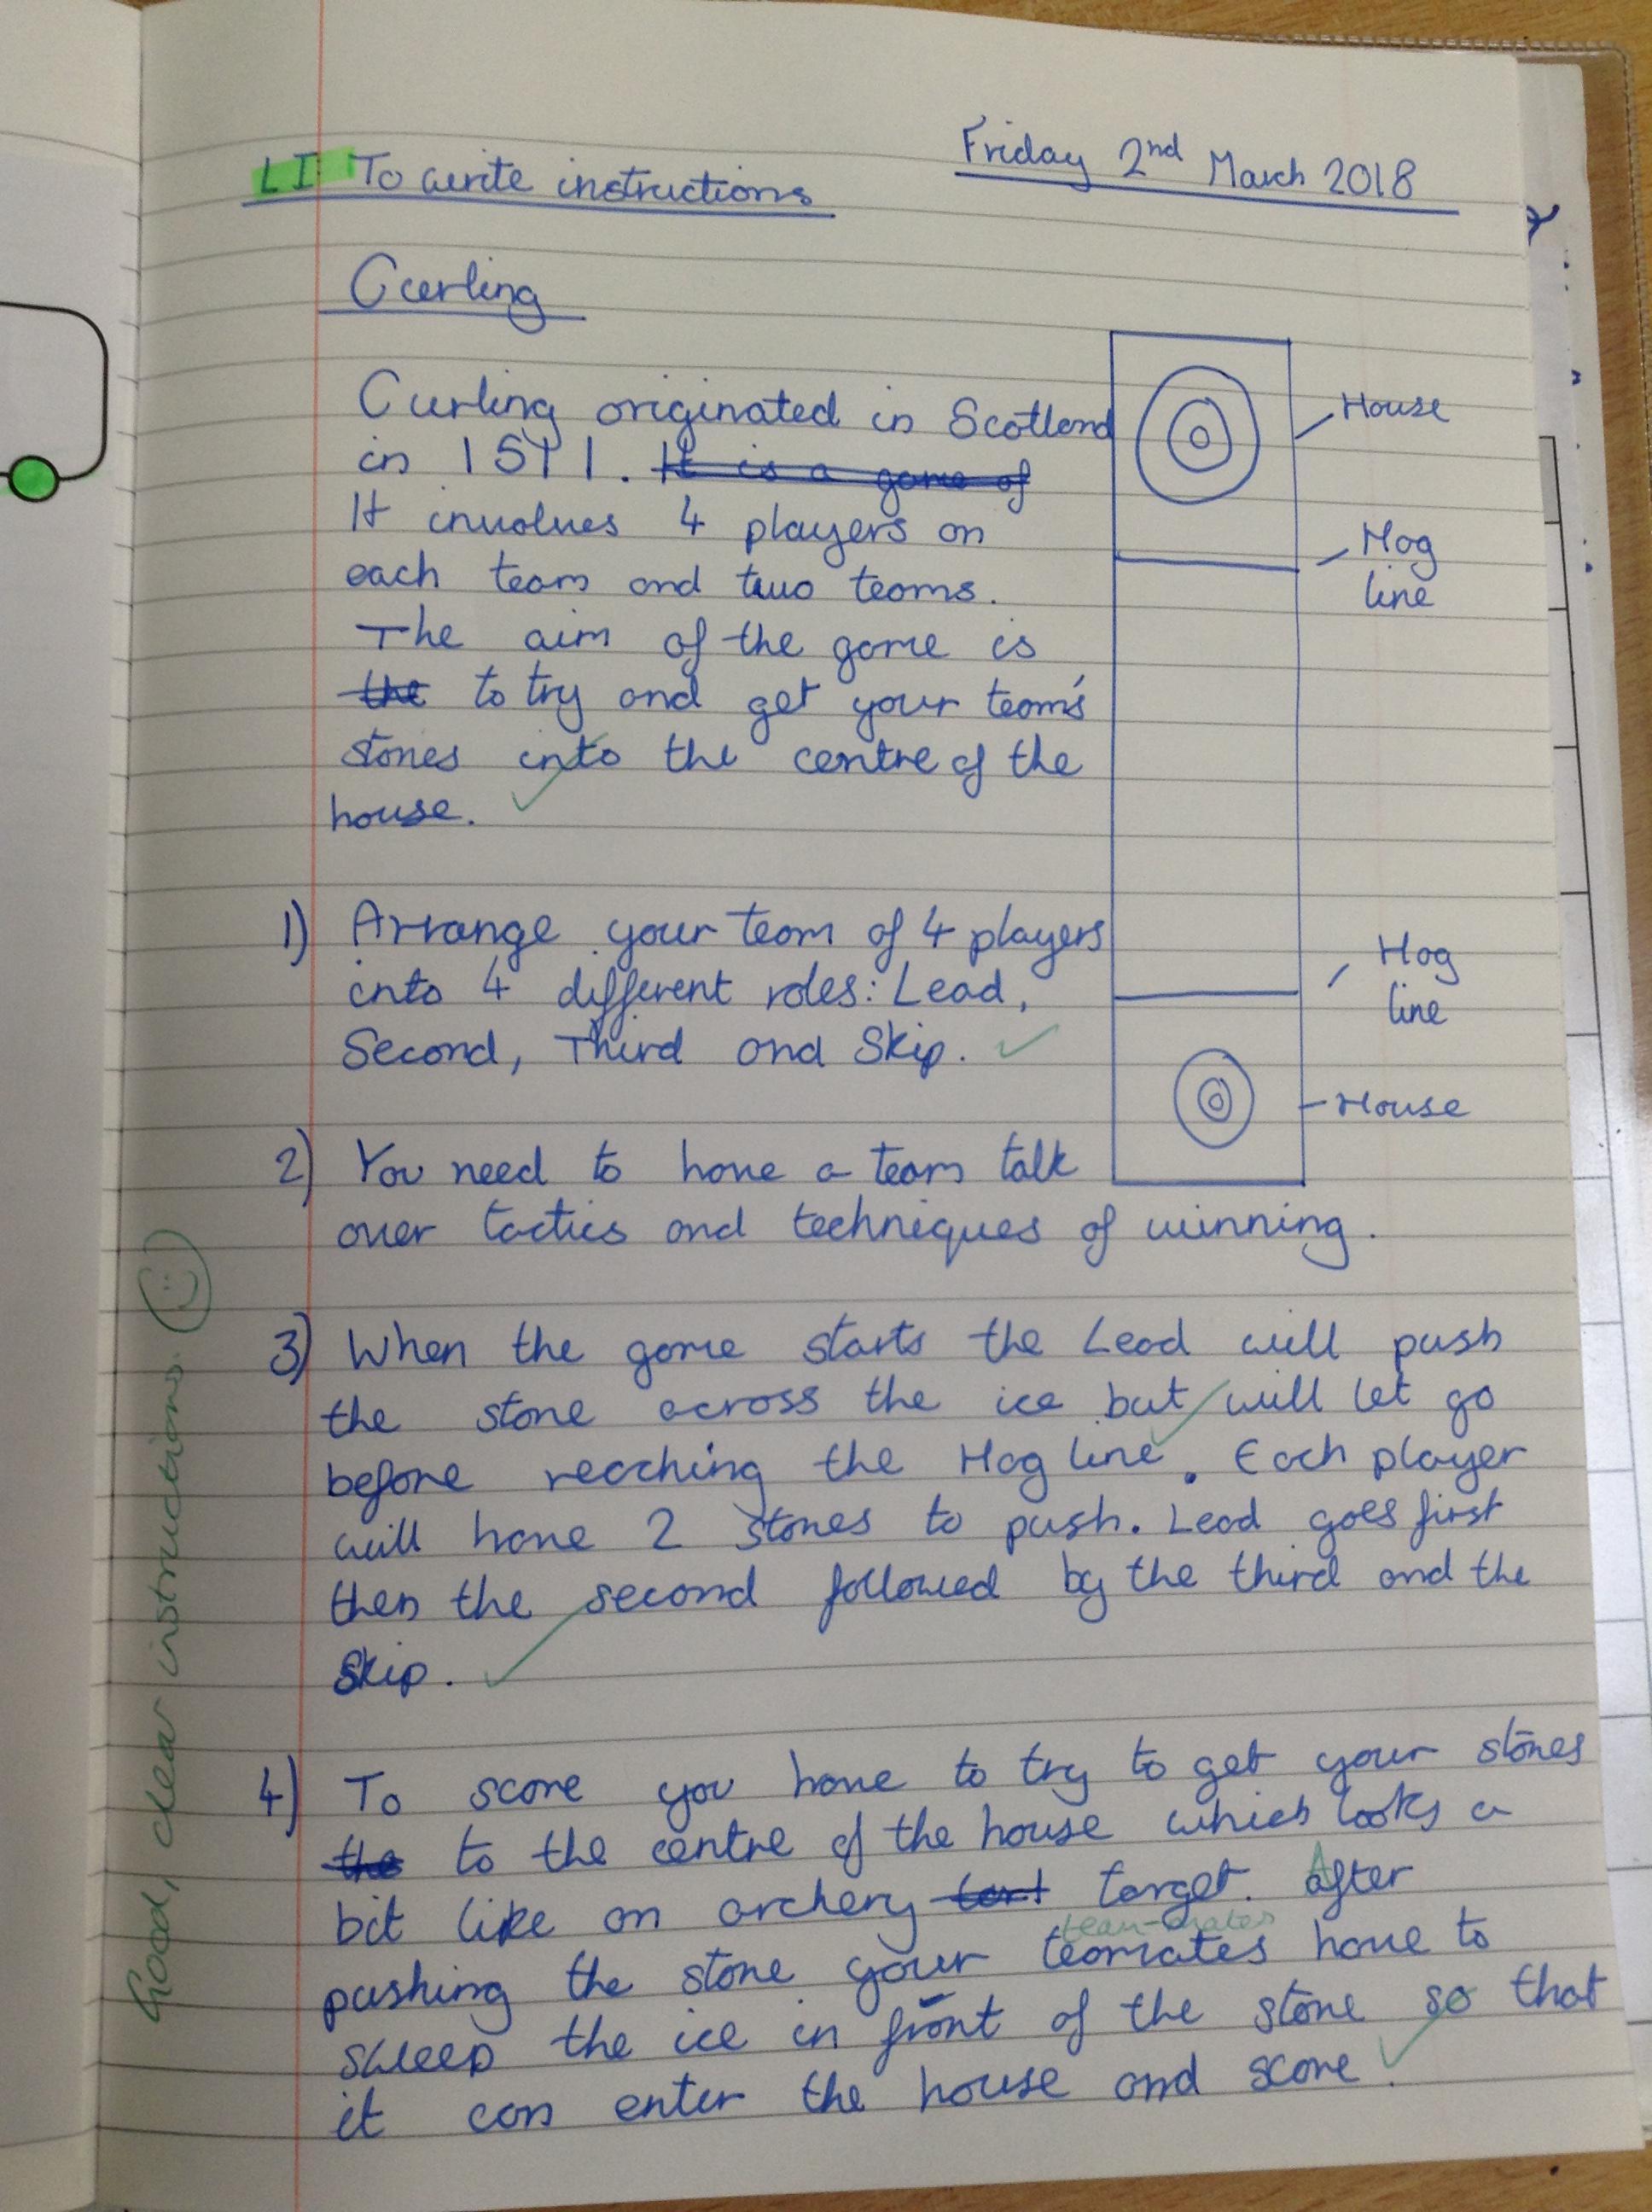 Friday 2nd March 2018
LI To write instructions
Curling
Curling originated in Scotland
in 1541. It is a game of
It involves 4 players on
each team and two teams.
The aim of the game is
the to try and get your team's
stones into the centre of the
house.
House
Hog
line
Hog
line
House
1) Arrange your team of 4 players
into 4 different roles: Lead,
Second, Third and Skip.
2) You need to have a team talk
over tactics and techniques of winning.
3) When the game starts the Lead will push
the stone across the ice but will let go
before reaching the Hog line. Each player
will have 2 stones to push. Lead goes first
then the second followed by the third and the
Skip.
4) To score you have to try to get your stones
the to the centre of the house which looks a
bit like an archery target. After
team-mates
pushing the stone your teamates have to
sweep the ice in front of the stone so that
it can enter the house and score.
Good, clear instructions.